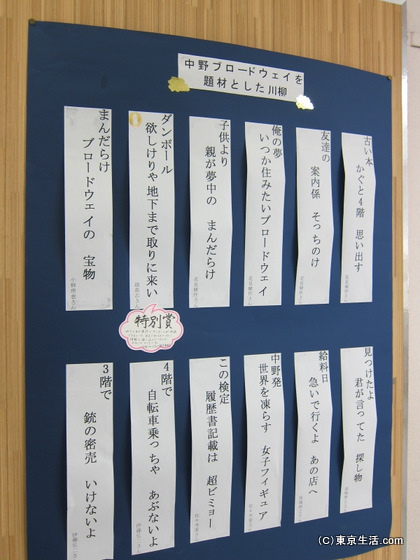 中野ブロードウェイを
題材とした川柳
古い本
かぐと4階 思い出す
友達の
案内係 そっちのけ
俺の夢
いつか住みたいブロードウェイ
子供より
親が夢中の まんだらけ
ダンボール
欲しけりゃ地下まで取りに来い
まんだらけ
ブロードウェイの 宝物
特別賞
見つけたよ
君が言ってた 探し物
給料日
急いで行くよ あの店へ
中野発
世界を凍らす 女子フィギュア
この検定
履歴書記載は 超ビミョー
4階で
自転車乗っちゃ あぶないよ
3階で
銃の密売 いけないよ
(C)東京生活.com